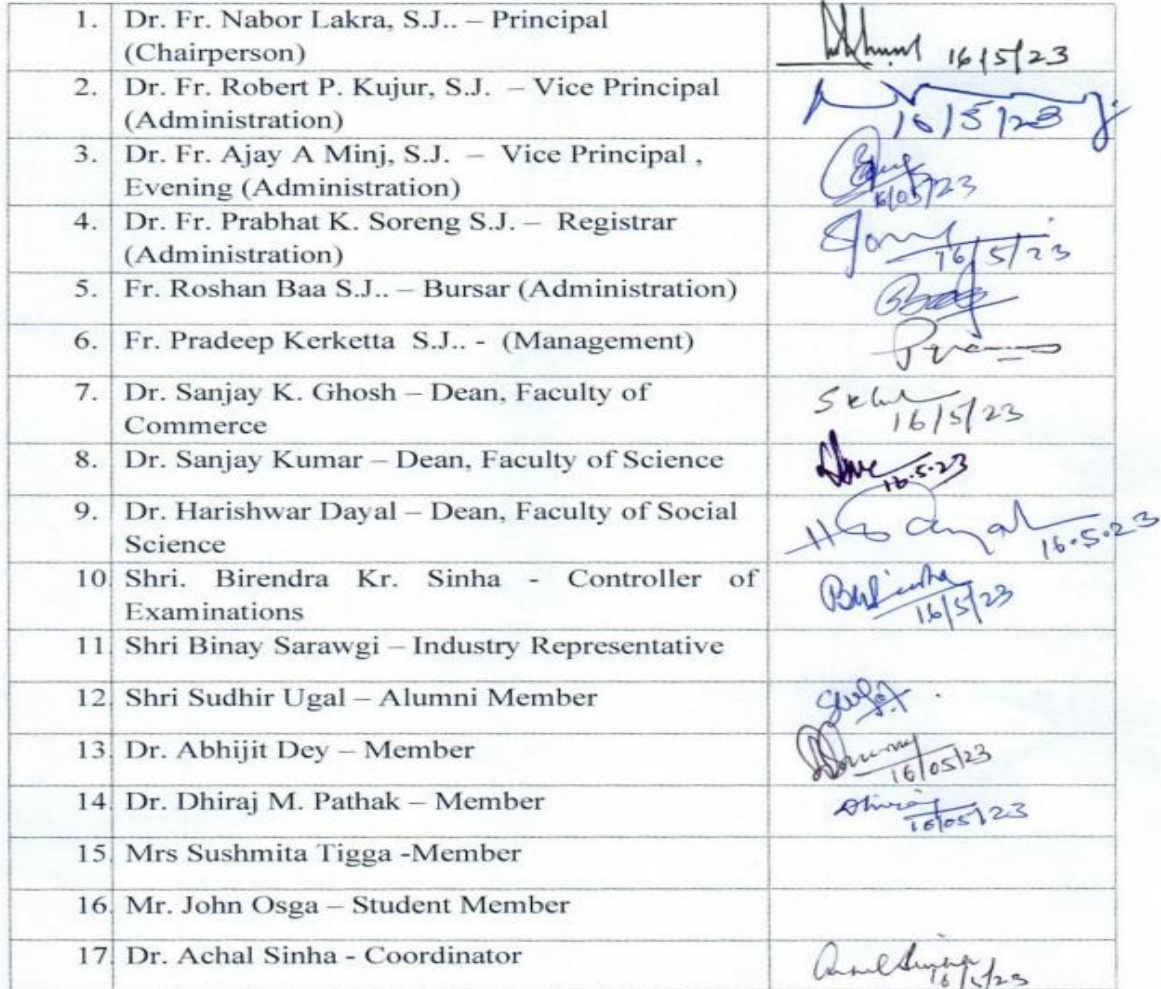 1. Dr. Fr. Nabor Lakra, S.J.. – Principal
(Chairperson)
16/5/23
2. Dr. Fr. Robert P. Kujur, S.J. – Vice Principal
(Administration)
16/5/23
3. Dr. Fr. Ajay A Minj, S.J. – Vice Principal ,
Evening (Administration)
16/05/23
4. Dr. Fr. Prabhat K. Soreng S.J. – Registrar
(Administration)
16/5/23
5. Fr. Roshan Baa S.J.. – Bursar (Administration)
6. Fr. Pradeep Kerketta S.J.. - (Management)
7. Dr. Sanjay K. Ghosh – Dean, Faculty of
Commerce
16/5/23
8. Dr. Sanjay Kumar – Dean, Faculty of Science
16.5.23
9. Dr. Harishwar Dayal – Dean, Faculty of Social
Science
H Dayal
16.5.23
10. Shri. Birendra Kr. Sinha - Controller of
Examinations
16/5/23
11. Shri Binay Sarawgi – Industry Representative
12. Shri Sudhir Ugal – Alumni Member
13. Dr. Abhijit Dey – Member
16/05/23
14. Dr. Dhiraj M. Pathak – Member
Dhiraj
16/05/23
15. Mrs Sushmita Tigga -Member
16. Mr. John Osga – Student Member
17. Dr. Achal Sinha - Coordinator
16/5/23